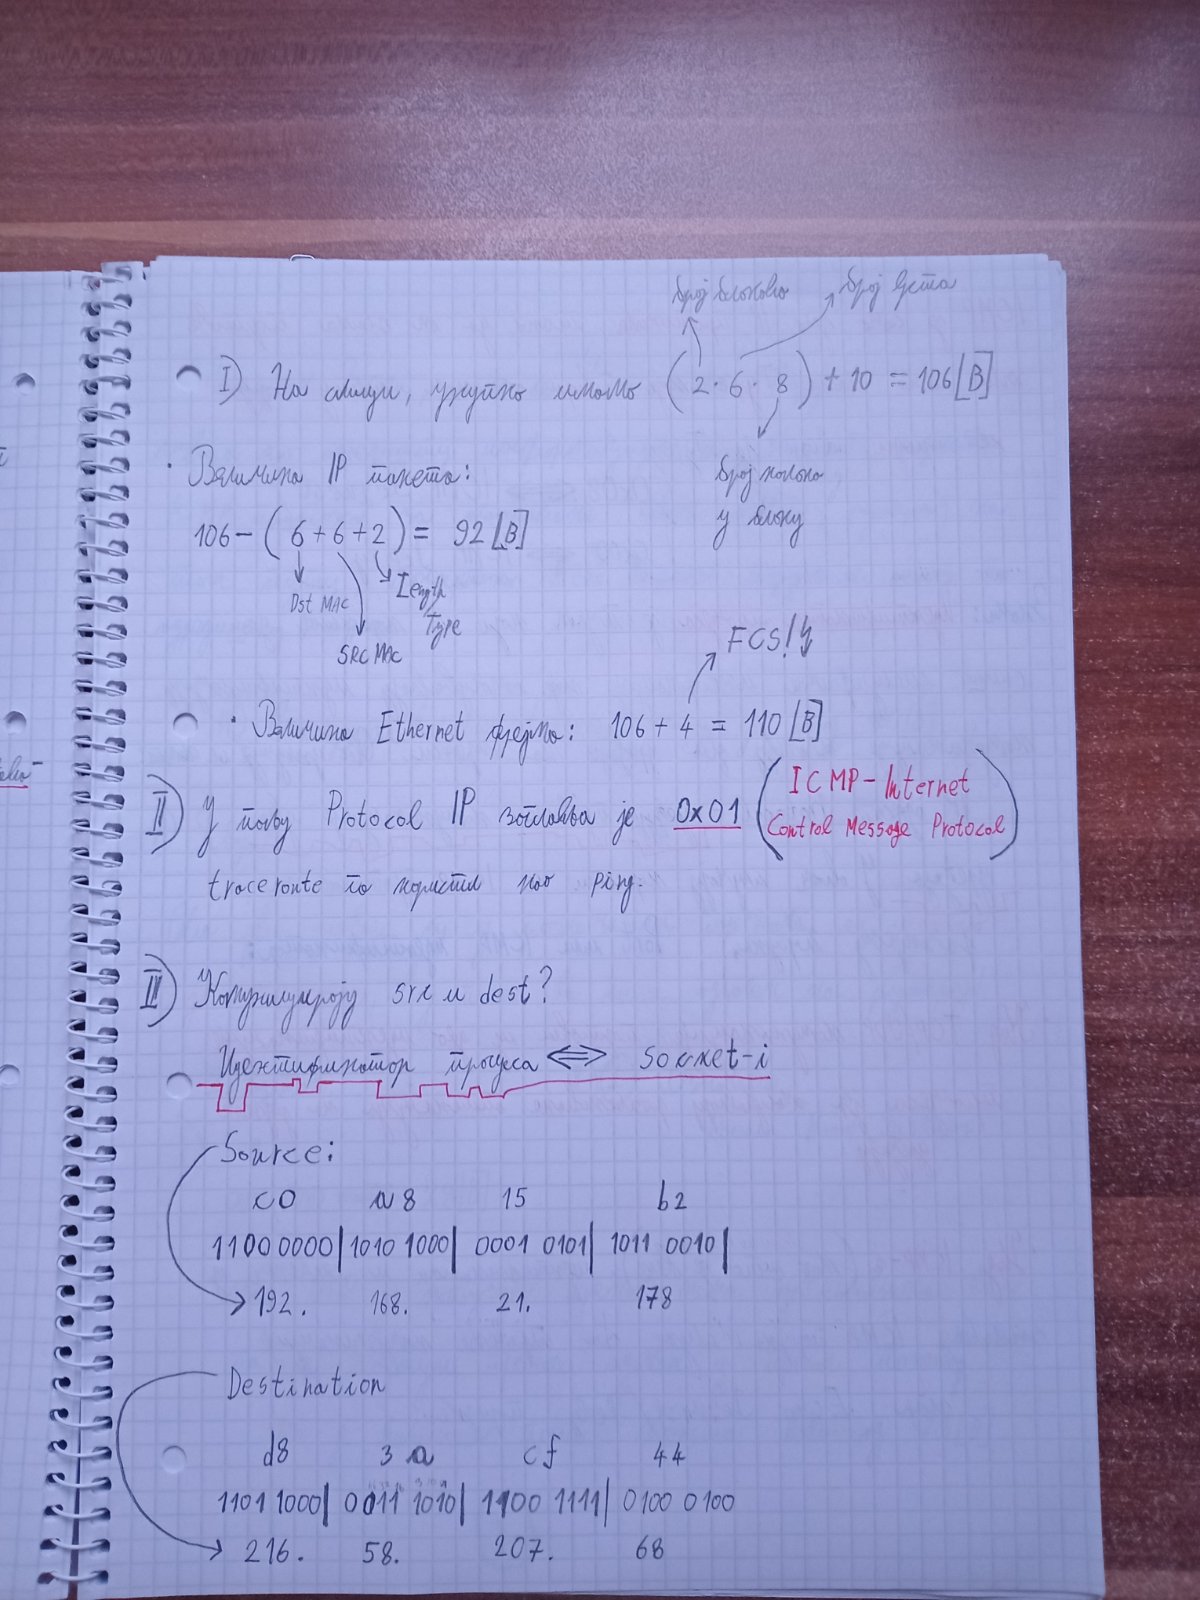 број блокова
број врста
I) На слици, укупно имамо (2 · 6 · 8) + 10 = 106 [B]
број колона
у блоку
· Величина IP пакета:
106 - (6 + 6 + 2) = 92 [B]
Dst MAC
SRC MAC
Length/
Type
FCS!
· Величина Ethernet фрејма: 106 + 4 = 110 [B]
II) У пољу Protocol IP заглавља је 0x01 (ICMP - Internet
Control Message Protocol)
traceroute то користи као ping.
III) Комуницирају src и dest?
Идентификатор процеса ⟺ socket-i
Source:
c0 a8 15 b2
1100 0000 | 1010 1000 | 0001 0101 | 1011 0010 |
192. 168. 21. 178
Destination
d8 3a cf 44
1101 1000 | 0011 1010 | 1100 1111 | 0100 0100
216. 58. 207. 68